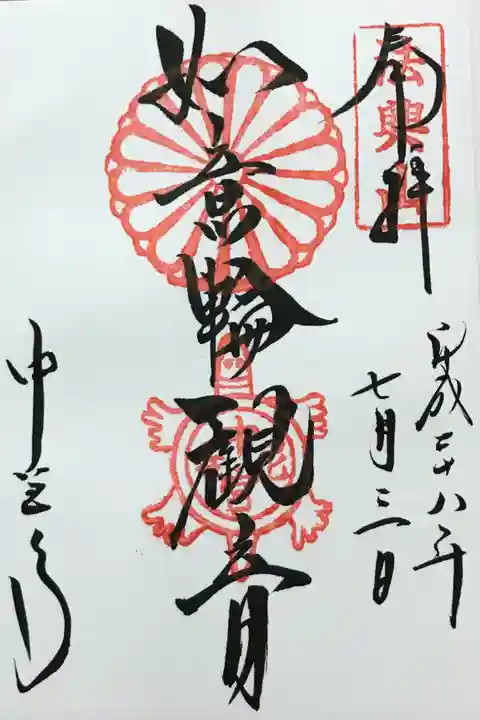 奉拝
法興山
平成二十八年
七月三日
如意輪観音
中宮寺